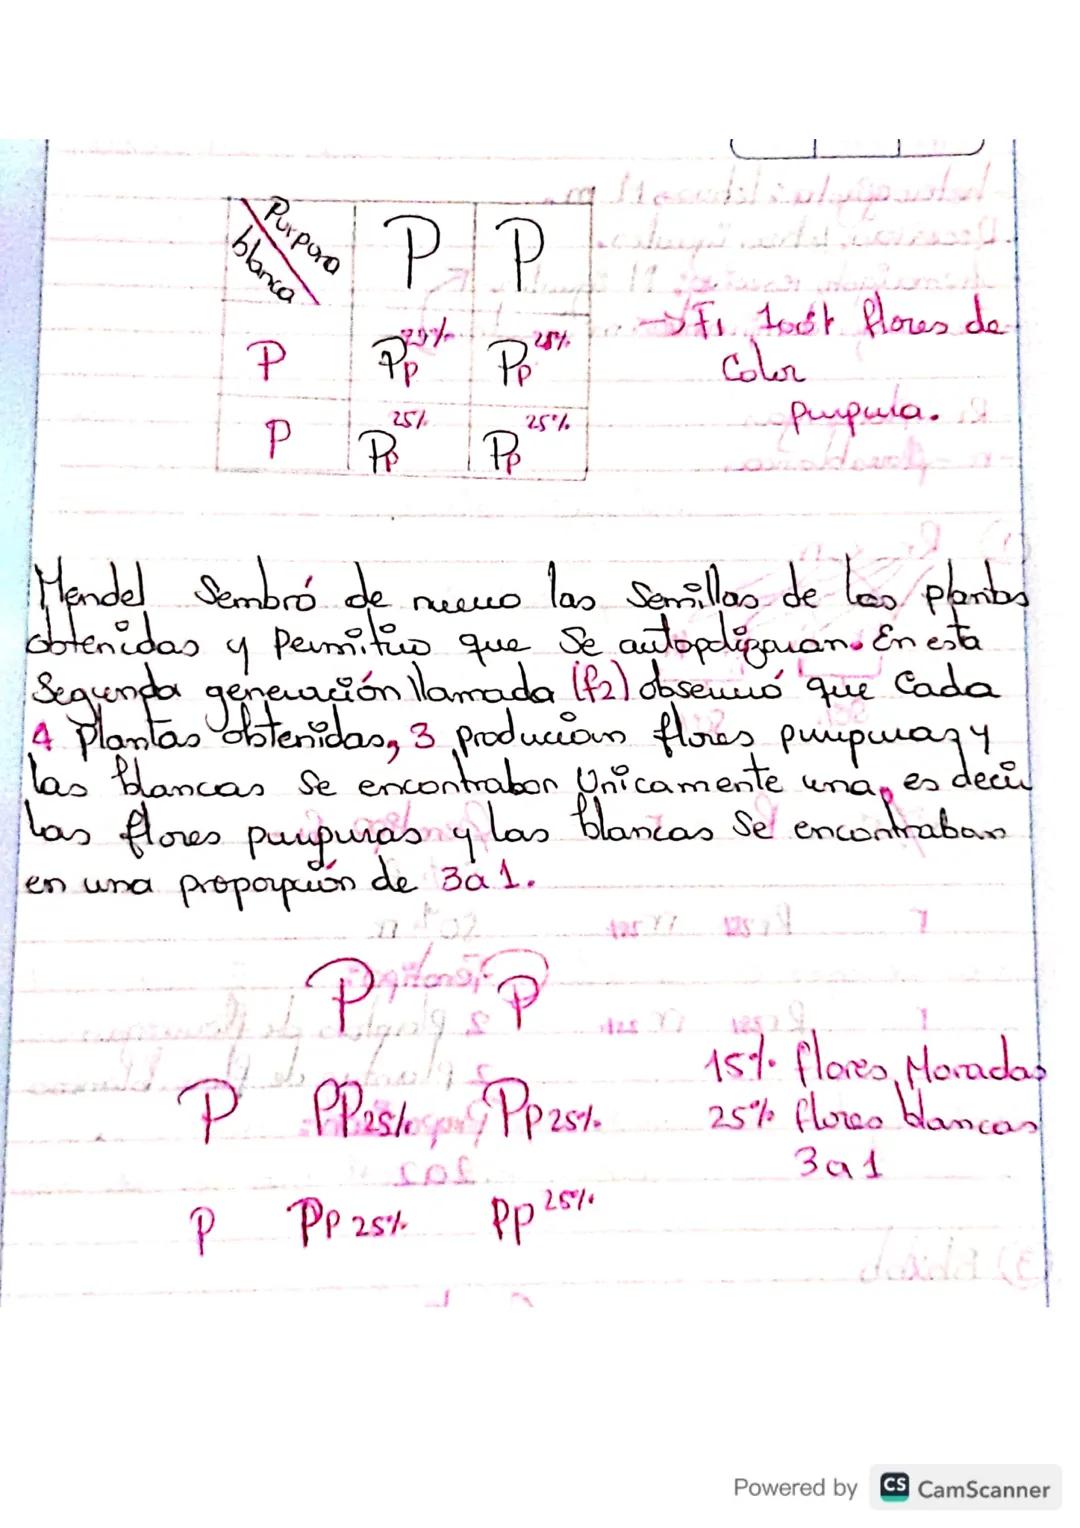 Purpura P P
blanca
P Pp 25% Pp 25%
P Pp 25% Pp 25%
→ F1 100% flores de
Color
purpura.
Mendel Sembró de nuevo las Semillas de las plantas
obtenidas y Permitió que Se autopolizaran. En esta
Segunda generación llamada (f2) observó que Cada
4 plantas obtenidas, 3 producian flores purpuras y
las blancas Se encontrabon Unicamente una, es decir
las flores purpuras y las blancas Se encontraban
en una proporción de 3 a 1.
P P
P PP 25% Pp 25%
p Pp 25% pp 25%
15% flores Moradas
25% flores blancas
3 a 1
Powered by CS CamScanner